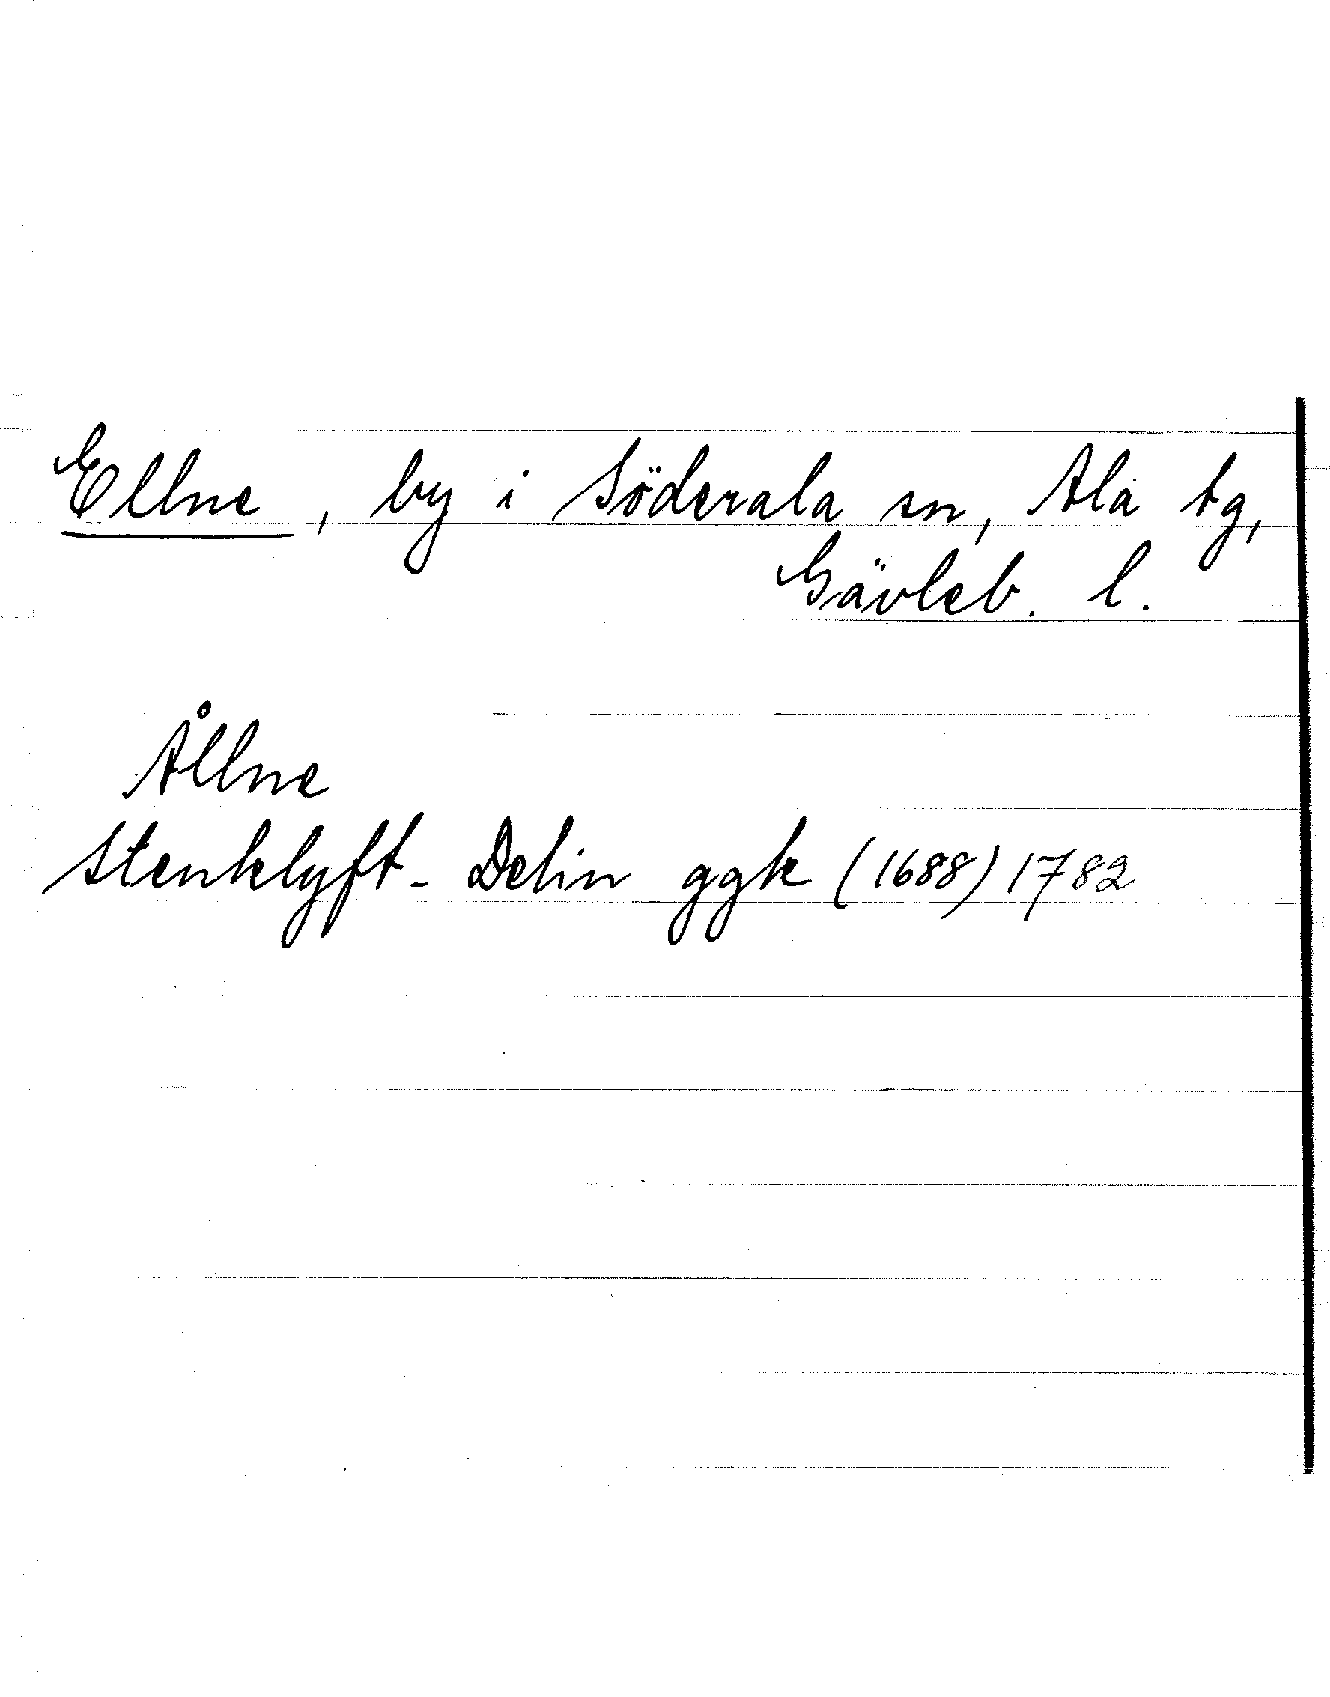 Ellne, by i Söderala sn, Ala tg,
Gävleb. l.
Ållne
Stenklyft - Delin ggk (1688) 1782